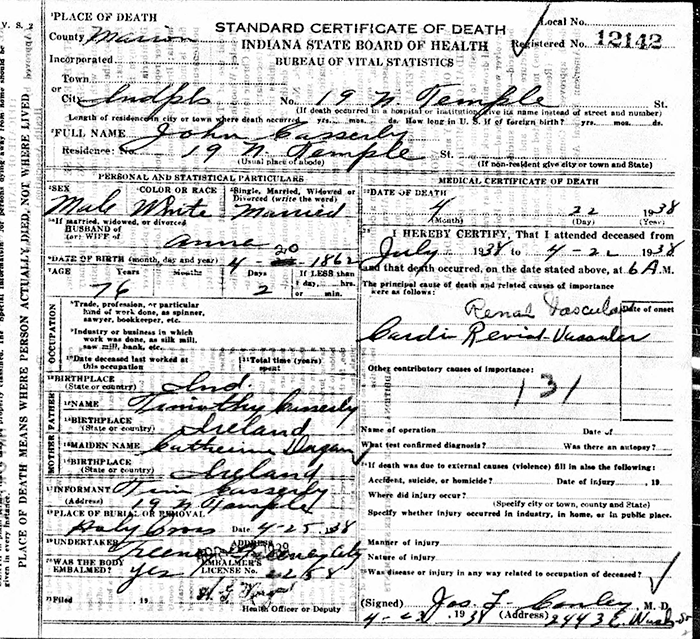 V. S. 2
PLACE OF DEATH MEANS WHERE PERSON ACTUALLY DIED, NOT WHERE LIVED
¹PLACE OF DEATH
County Marion
STANDARD CERTIFICATE OF DEATH
INDIANA STATE BOARD OF HEALTH
BUREAU OF VITAL STATISTICS
Local No.
Registered No. 12142
Incorporated
Town
or
City Indpls No. 19 N Temple St.
(If death occurred in a hospital or institution, give its name instead of street and number)
Length of residence in city or town where death occurred yrs. mos. ds. How long in U. S. if of foreign birth? yrs. mos. ds.
²FULL NAME John Casserly
Residence: No. 19 N. Temple St.
(Usual place of abode) (If non-resident give city or town and State)
PERSONAL AND STATISTICAL PARTICULARS
³SEX Male
COLOR OR RACE White
Single, Married, Widowed or Divorced (write the word) Married
If married, widowed, or divorced
HUSBAND of
(or) WIFE of Anna
DATE OF BIRTH (month, day and year) 4-20-1862
AGE Years 76 Months Days 2
If LESS than
1 day, hrs.
or min.
OCCUPATION
Trade, profession, or particular
kind of work done, as spinner,
sawyer, bookkeeper, etc.
Industry or business in which
work was done, as silk mill,
saw mill, bank, etc.
Date deceased last worked at
this occupation
Total time (years)
spent
BIRTHPLACE
(State or country) Ind.
FATHER
NAME Timothy Casserly
BIRTHPLACE
(State or country) Ireland
MOTHER
MAIDEN NAME Catherine
BIRTHPLACE
(State or country) Ireland
INFORMANT Tim Casserly
(Address) 19 N Temple
PLACE OF BURIAL OR REMOVAL
Holy Cross Date 4-25-1938
UNDERTAKER Feeney & Feeney
ADDRESS City
WAS THE BODY
EMBALMED? yes
EMBALMER'S
LICENSE No.
Filed 19
Health Officer or Deputy
MEDICAL CERTIFICATE OF DEATH
DATE OF DEATH
4 22 1938
(Month) (Day) (Year)
I HEREBY CERTIFY, That I attended deceased from
July 1938 to 4-22 1938
and that death occurred, on the date stated above, at 6 A.M.
The principal cause of death and related causes of importance
were as follows:
Date of onset
Renal Vascular
Cardio Vascular
Other contributory causes of importance:
131
Name of operation Date of
What test confirmed diagnosis? Was there an autopsy?
If death was due to external causes (violence) fill in also the following:
Accident, suicide, or homicide? Date of injury , 19
Where did injury occur?
(Specify city or town, county and State)
Specify whether injury occurred in industry, in home, or in public place.
Manner of injury
Nature of injury
Was disease or injury in any way related to occupation of deceased?
(Signed) Jos. L Conley, M. D.
4-23 1938 (Address) 2443 E. Wash St